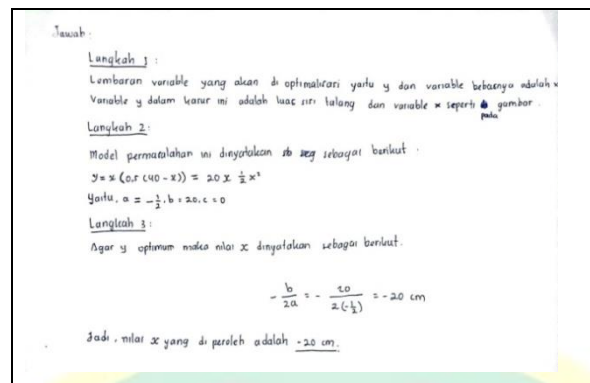 Jawab :
Langkah 1 :
Lembaran variable yang akan di optimalisasi yaitu y dan variable bebasnya adalah x
Variable y dalam kasus ini adalah luas sisi talang dan variable x seperti pada gambar.
Langkah 2 :
Model permasalahan ini dinyatakan sebagai berikut .
y = x (0.5 (40 - x)) = 20 x ½ x²
Yaitu, a = -½, b = 20, c = 0
Langkah 3 :
Agar y optimum maka nilai x dinyatakan sebagai berikut.
- b/2a = - 20/2(-½) = -20 cm
Jadi, nilai x yang di peroleh adalah -20 cm.